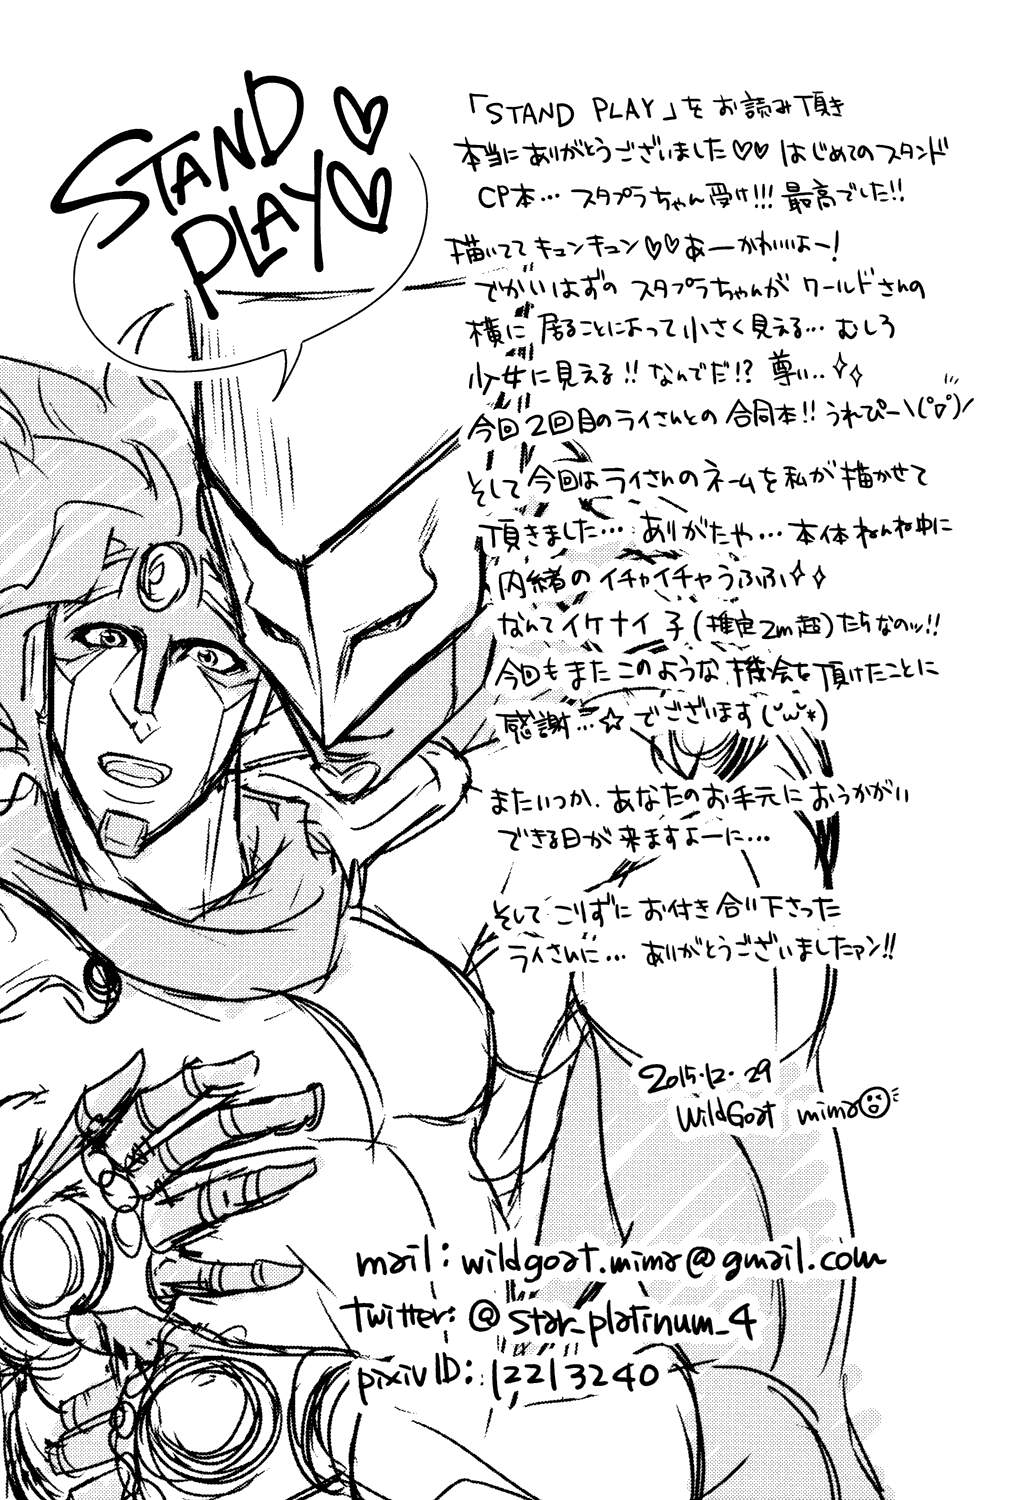 STAND
PLAY♡♡
「STAND PLAY」をお読み頂き
本当にありがとうございました♡♡ はじめてのスタンド
CP本… スタプラちゃん受け!!! 最高でした!!
描いててキュンキュン♡♡あーかわいいよー!
でかいはずの スタプラちゃんが ワールドさんの
横に居ることによって小さく見える… むしろ
少女に見える!! なんでだ!? 尊い..✧✧
今回2回目のライさんとの合同本!! うれぴー\(°▽°)/
そして今回はライさんのネームを私が描かせて
頂きました… ありがたや… 本体ねんね中に
内緒のイチャイチャうふふ✧✧
なんてイケナイ子(推定2m超)たちなのッ!!
今回もまたこのような機会を頂けたことに
感謝…☆でございます(˘ω˘*)
またいつか、あなたのお手元におうかがい
できる日が来ますよーに…
そしてこりずにお付き合い下さった
ライさんに… ありがとうございましたァン!!
2015.12.29
WildGoat mima
mail: wildgoat.mima@gmail.com
twitter: @star_platinum_4
pixivID: 12213240